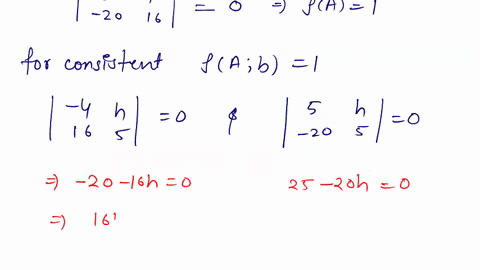 -20 16 = 0 ⇒ ρ(A) = 1
for consistent ρ(A;b) = 1
| -4 h | = 0 & | 5 h | = 0
| 16 5 | | -20 5 |
⇒ -20 -16h = 0 25 -20h = 0
⇒ 16